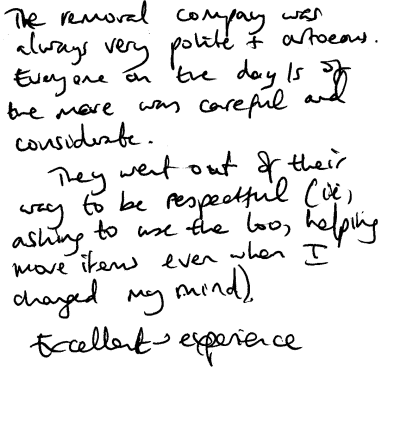 The removal company was
always very polite + courteous.
Everyone on the day/s of
the move was careful and
considerate.
They went out of their
way to be respectful (ie,
asking to use the loo, helping
move items even when I
changed my mind).
Excellent experience